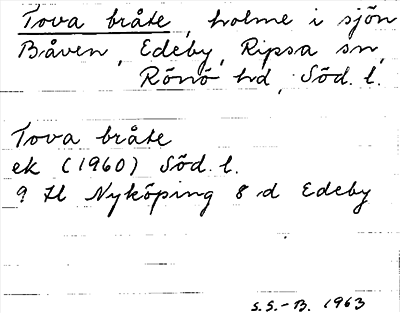 Tova bråte, holme i sjön
Båven, Edeby, Ripsa sn,
Rönö hd, Söd. l.
Tova bråte
ek (1960) Söd. l.
9 H Nyköping 8 d Edeby
S.S.-B. 1963